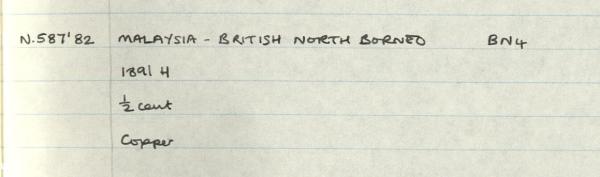 N.587'82 MALAYSIA - BRITISH NORTH BORNEO BN4
1891 H
½ cent
Copper